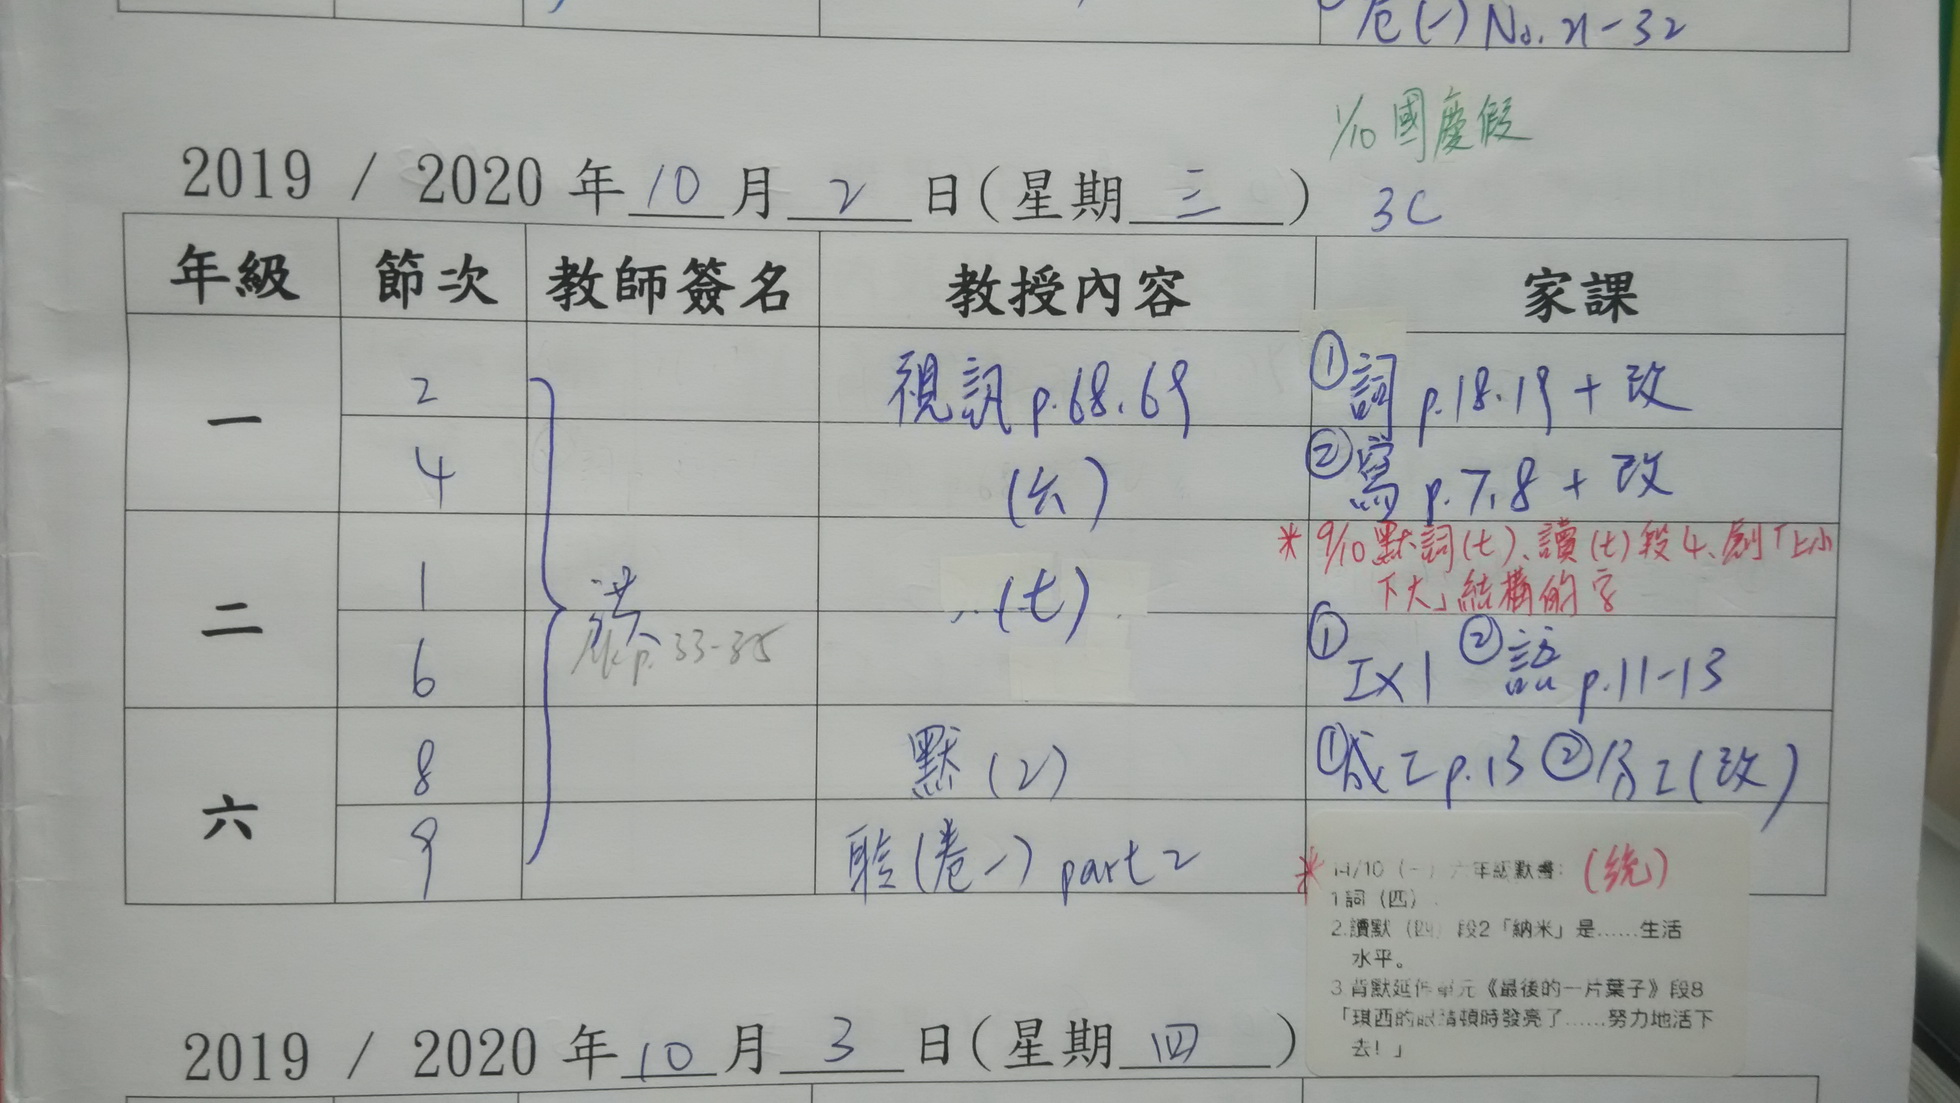 (一) No. 21-32
1/10 國慶假
2019 / 2020 年 10 月 2 日(星期 三 ) 3C
年級 節次 教師簽名 教授內容 家課
一 2 視訊 p.68.69 ①詞 p.18.19 + 改
4 (六) ②寫 p.7,8 + 改
* 9/10 默詞(七)、讀(七)段4、創「上小
下大」結構的字
二 1 (七)
6 p.33-35 ① Ex 1 ② 語 p.11-13
六 8 默(2) ① p.13 ② (改)
9 聆(卷一) part 2
* 14/10 (一) 六年級默書: (統)
1.詞 (四)
2.讀默 (四) 段2「納米」是……生活
水平。
3.背默延伸單元《最後的一片葉子》段8
「琪西的眼睛頓時發亮了……努力地活下
去!」
2019 / 2020 年 10 月 3 日(星期 四 )